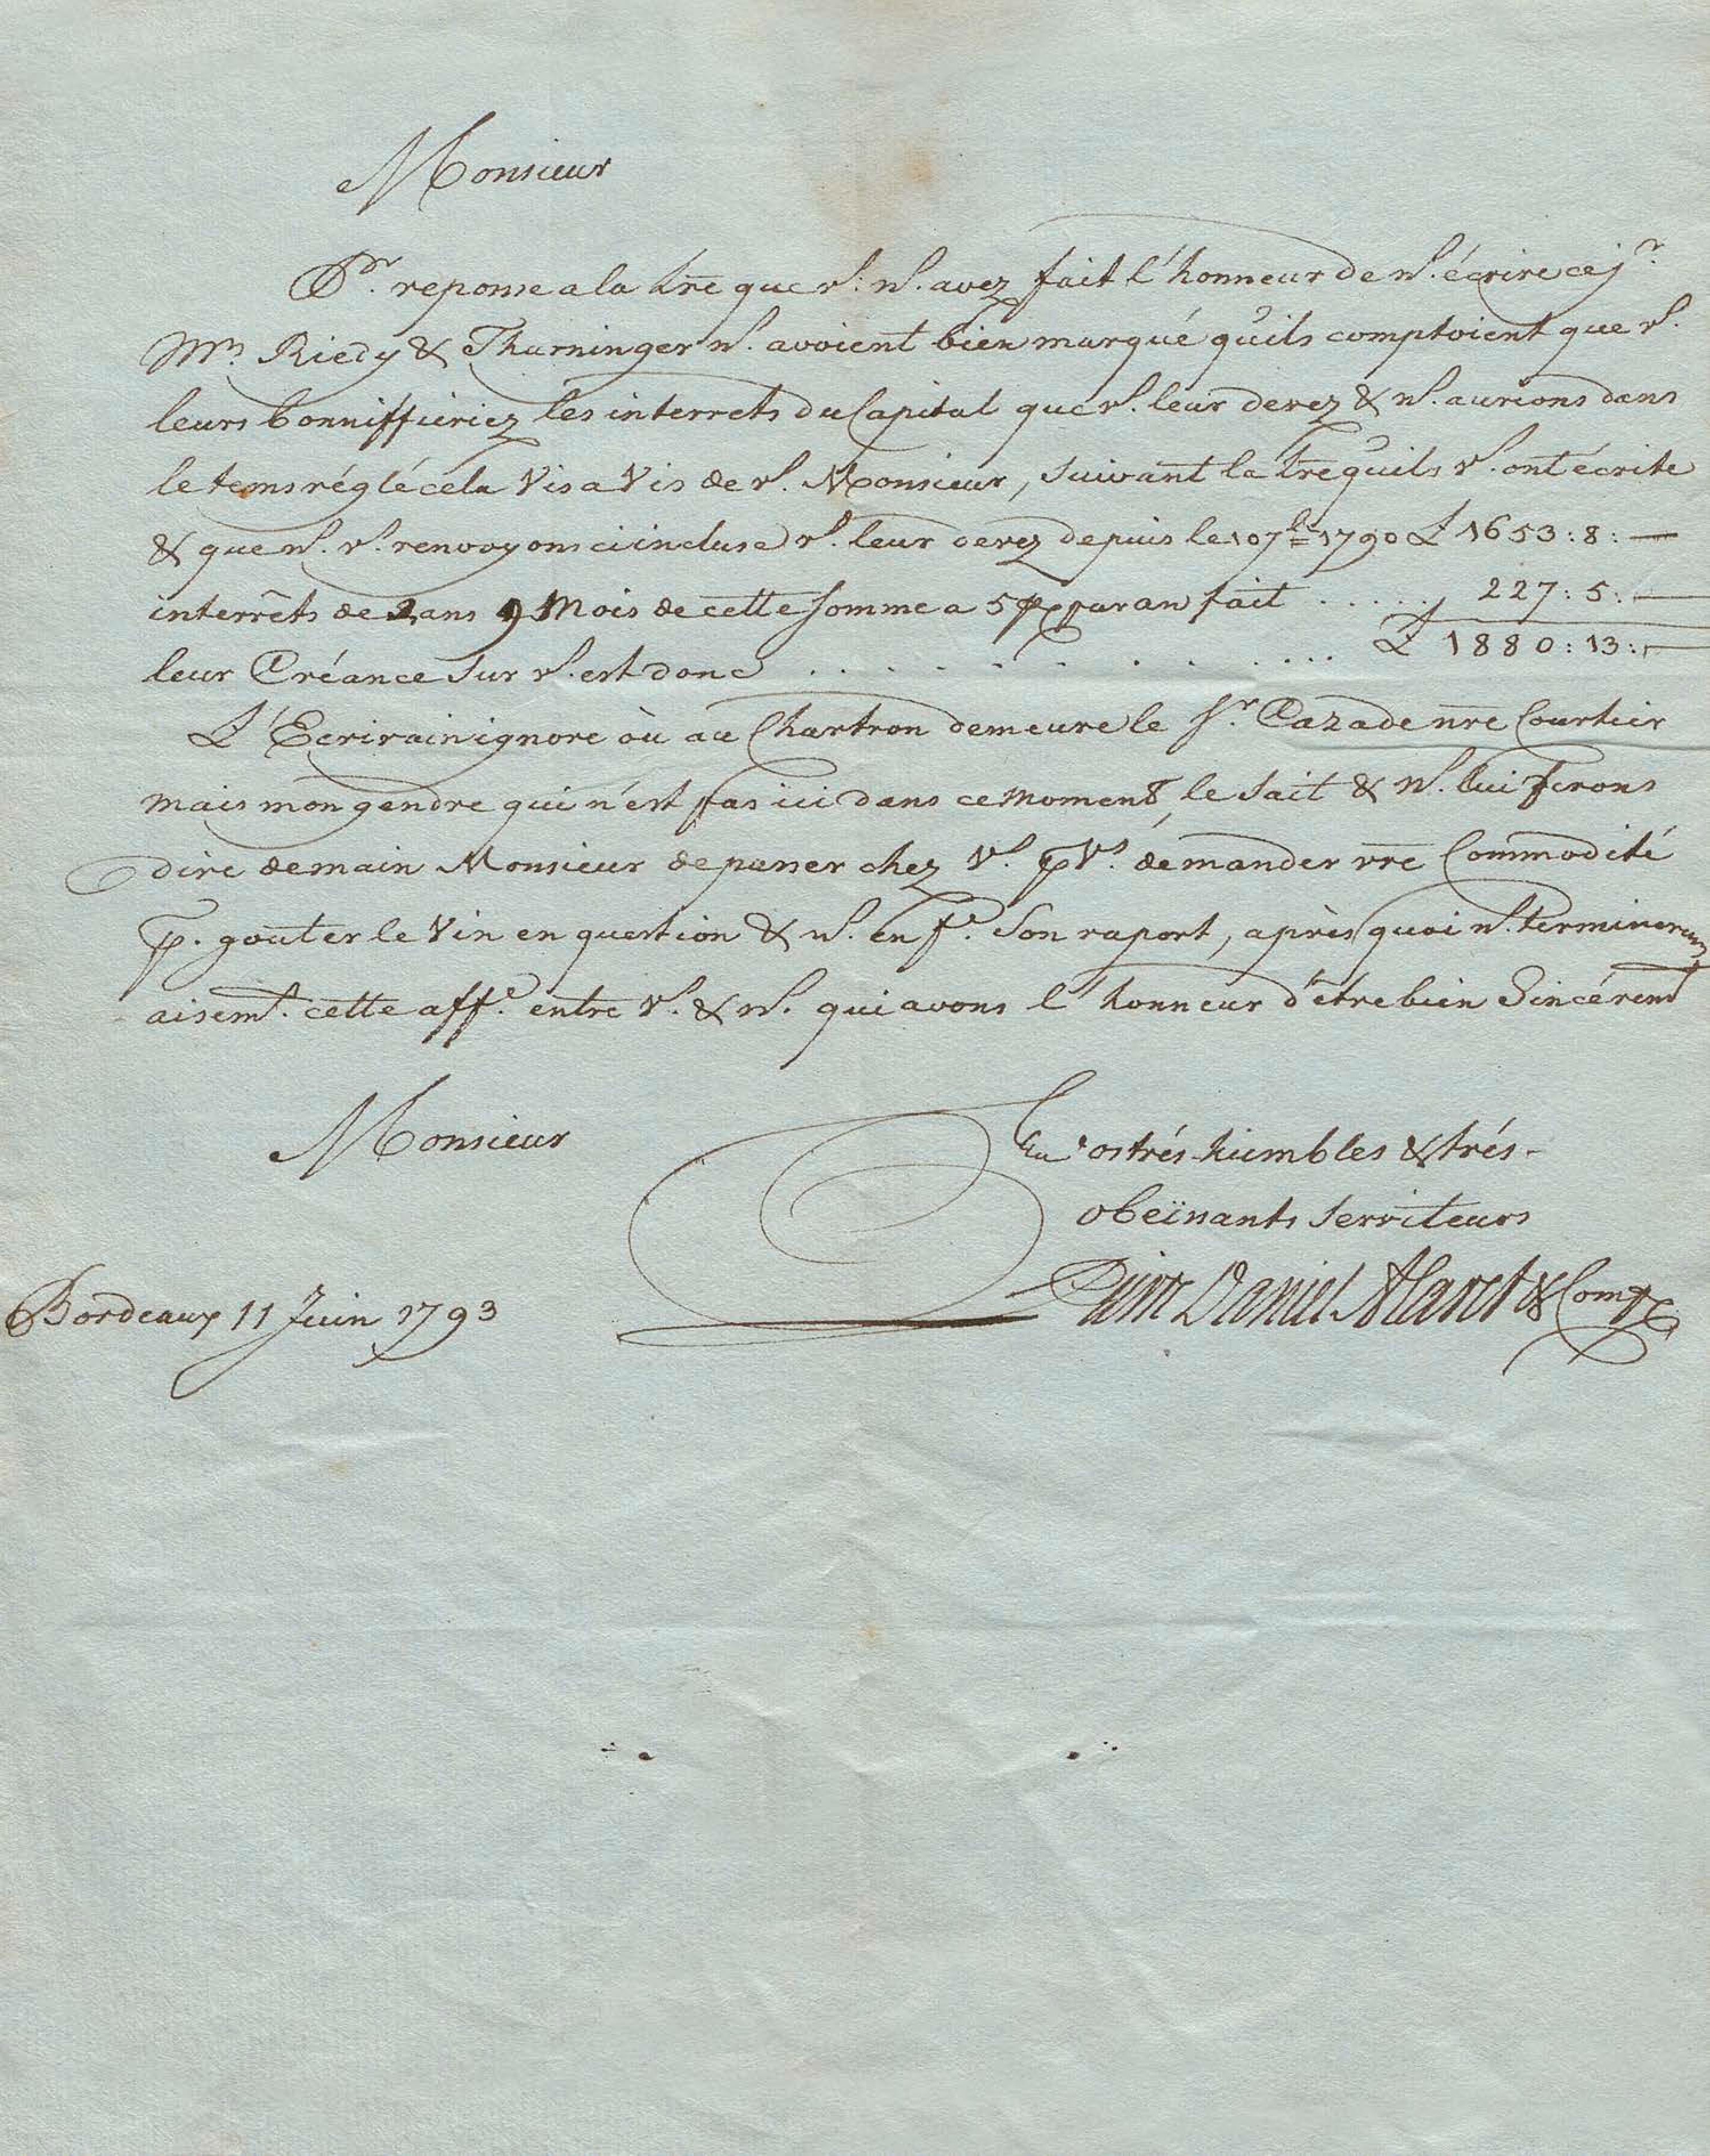 Monsieur
Pr. reponse a la Lre que vs. ns. avez fait l'honneur de ns. écrire ce jr.
Mrs Riedy & Thurninger ns. avoient bien marqué qu'ils comptoient que vs.
leurs bonniffieriez les interrets du Capital que vs. leur devez & ns. aurions dans
le tems réglé cela Vis a Vis de vs. Monsieur, suivant la Lre qu'ils vs. ont écrite
& que ns. vs. renvoyons ci incluse vs. leur devez depuis le 10 7b 1790 £ 1653:8:—
interrêts de 2 ans 9 Mois de cette somme a 5 p% par an fait ..... 227:5:—
leur Créance sur vs. est donc .......... £ 1880:13:—
L'Ecrivain ignore où au Chartron demeure le Sr. Cazade nre Courtier
mais mon gendre qui n'est pas ici dans ce moment, le sait & ns. lui ferons
dire demain Monsieur de passer chez vs. pr vs. demander vre Commodité
p. gouter le Vin en question & ns. en fe. son raport, après quoi ns. terminerons
aisemt. cette affe. entre vs. & ns. qui avons l'honneur d'être bien Sincéremt
Monsieur
Vos trés-humbles & trés-
obeïssants serviteurs
Daniel & Compe
Bordeaux 11 Juin 1793